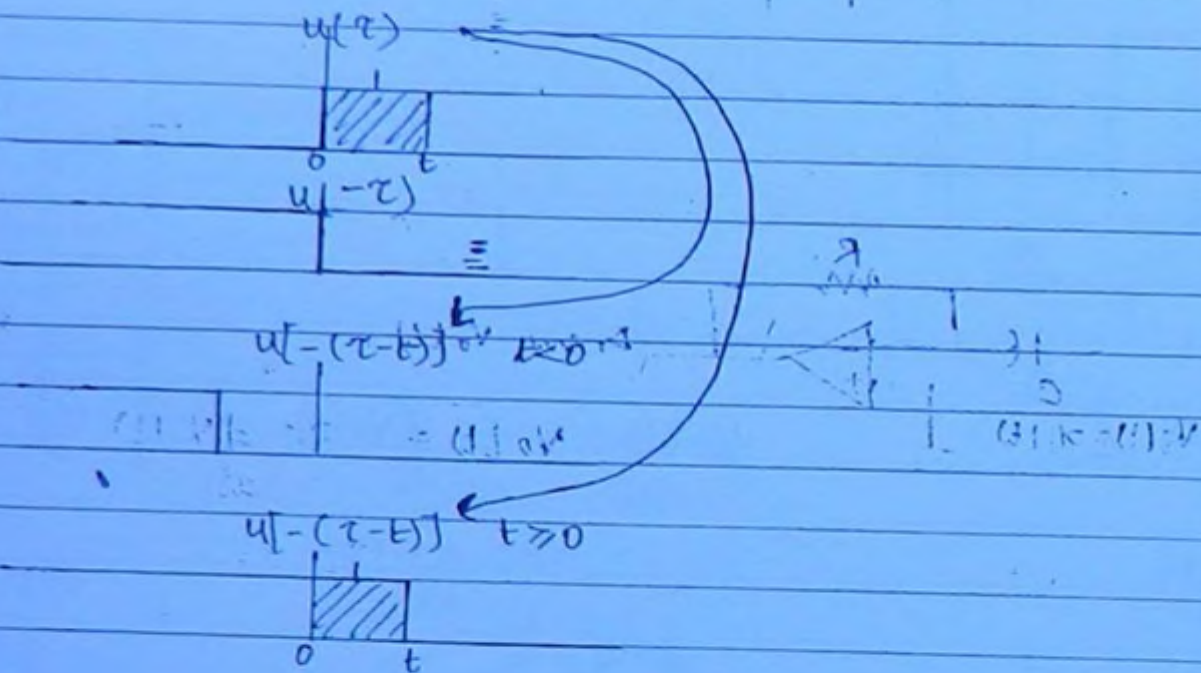 u(τ)
1
0 t
u(-τ)
u[-(τ-t)] t<0
u[-(τ-t)] t≥0
0 t